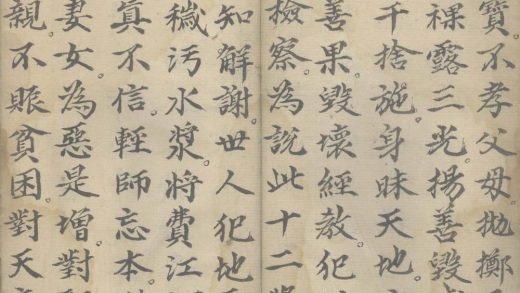 寶。不孝父母。拋擲
裸露三光。揚善毀
千捨施。身昧天地。
善果。毀壞經教。犯
檢察。為說此十二
知解謝。世人犯地
穢汚水漿。將費江
真不信。輕師忘本。
妻女。為惡是增。對
親。不賑貧困。對天